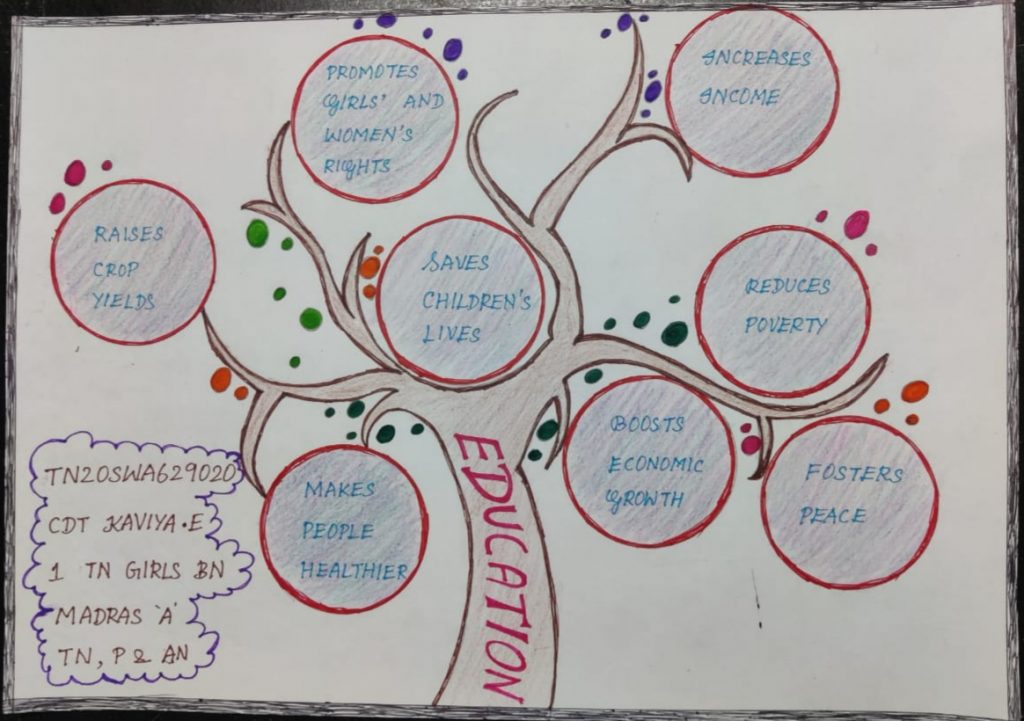 PROMOTES
GIRLS' AND
WOMEN'S
RIGHTS
INCREASES
INCOME
RAISES
CROP
YIELDS
SAVES
CHILDREN'S
LIVES
REDUCES
POVERTY
MAKES
PEOPLE
HEALTHIER
BOOSTS
ECONOMIC
GROWTH
FOSTERS
PEACE
EDUCATION
TN20SWA629020
CDT KAVIYA.E
1 TN GIRLS BN
MADRAS 'A'
TN, P & AN